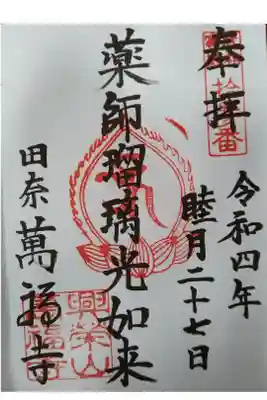 奉拝
令和四年
睦月二十七日
薬師瑠璃光如来
田奈 萬福寺